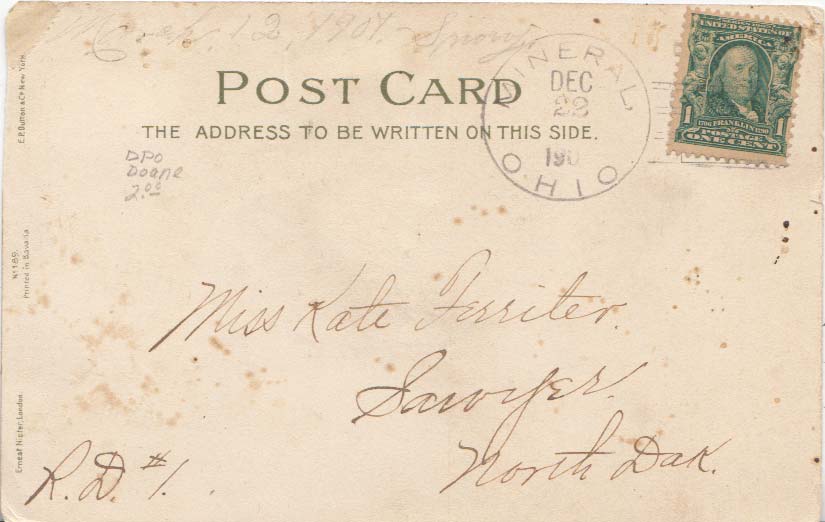 March, 12, 1901.
POST CARD
THE ADDRESS TO BE WRITTEN ON THIS SIDE.
MINERAL,
DEC
22
190
OHIO
UNITED STATES OF
AMERICA
1
1706 FRANKLIN 1790
POSTAGE
ONE CENT
DPO
Doane
2.00
E.P. Dutton & Co. New York.
No 1189.
Printed in Bavaria
Ernest Nister, London.
Miss Kate Ferriter.
Sawyer.
North Dak.
R.D. #1.